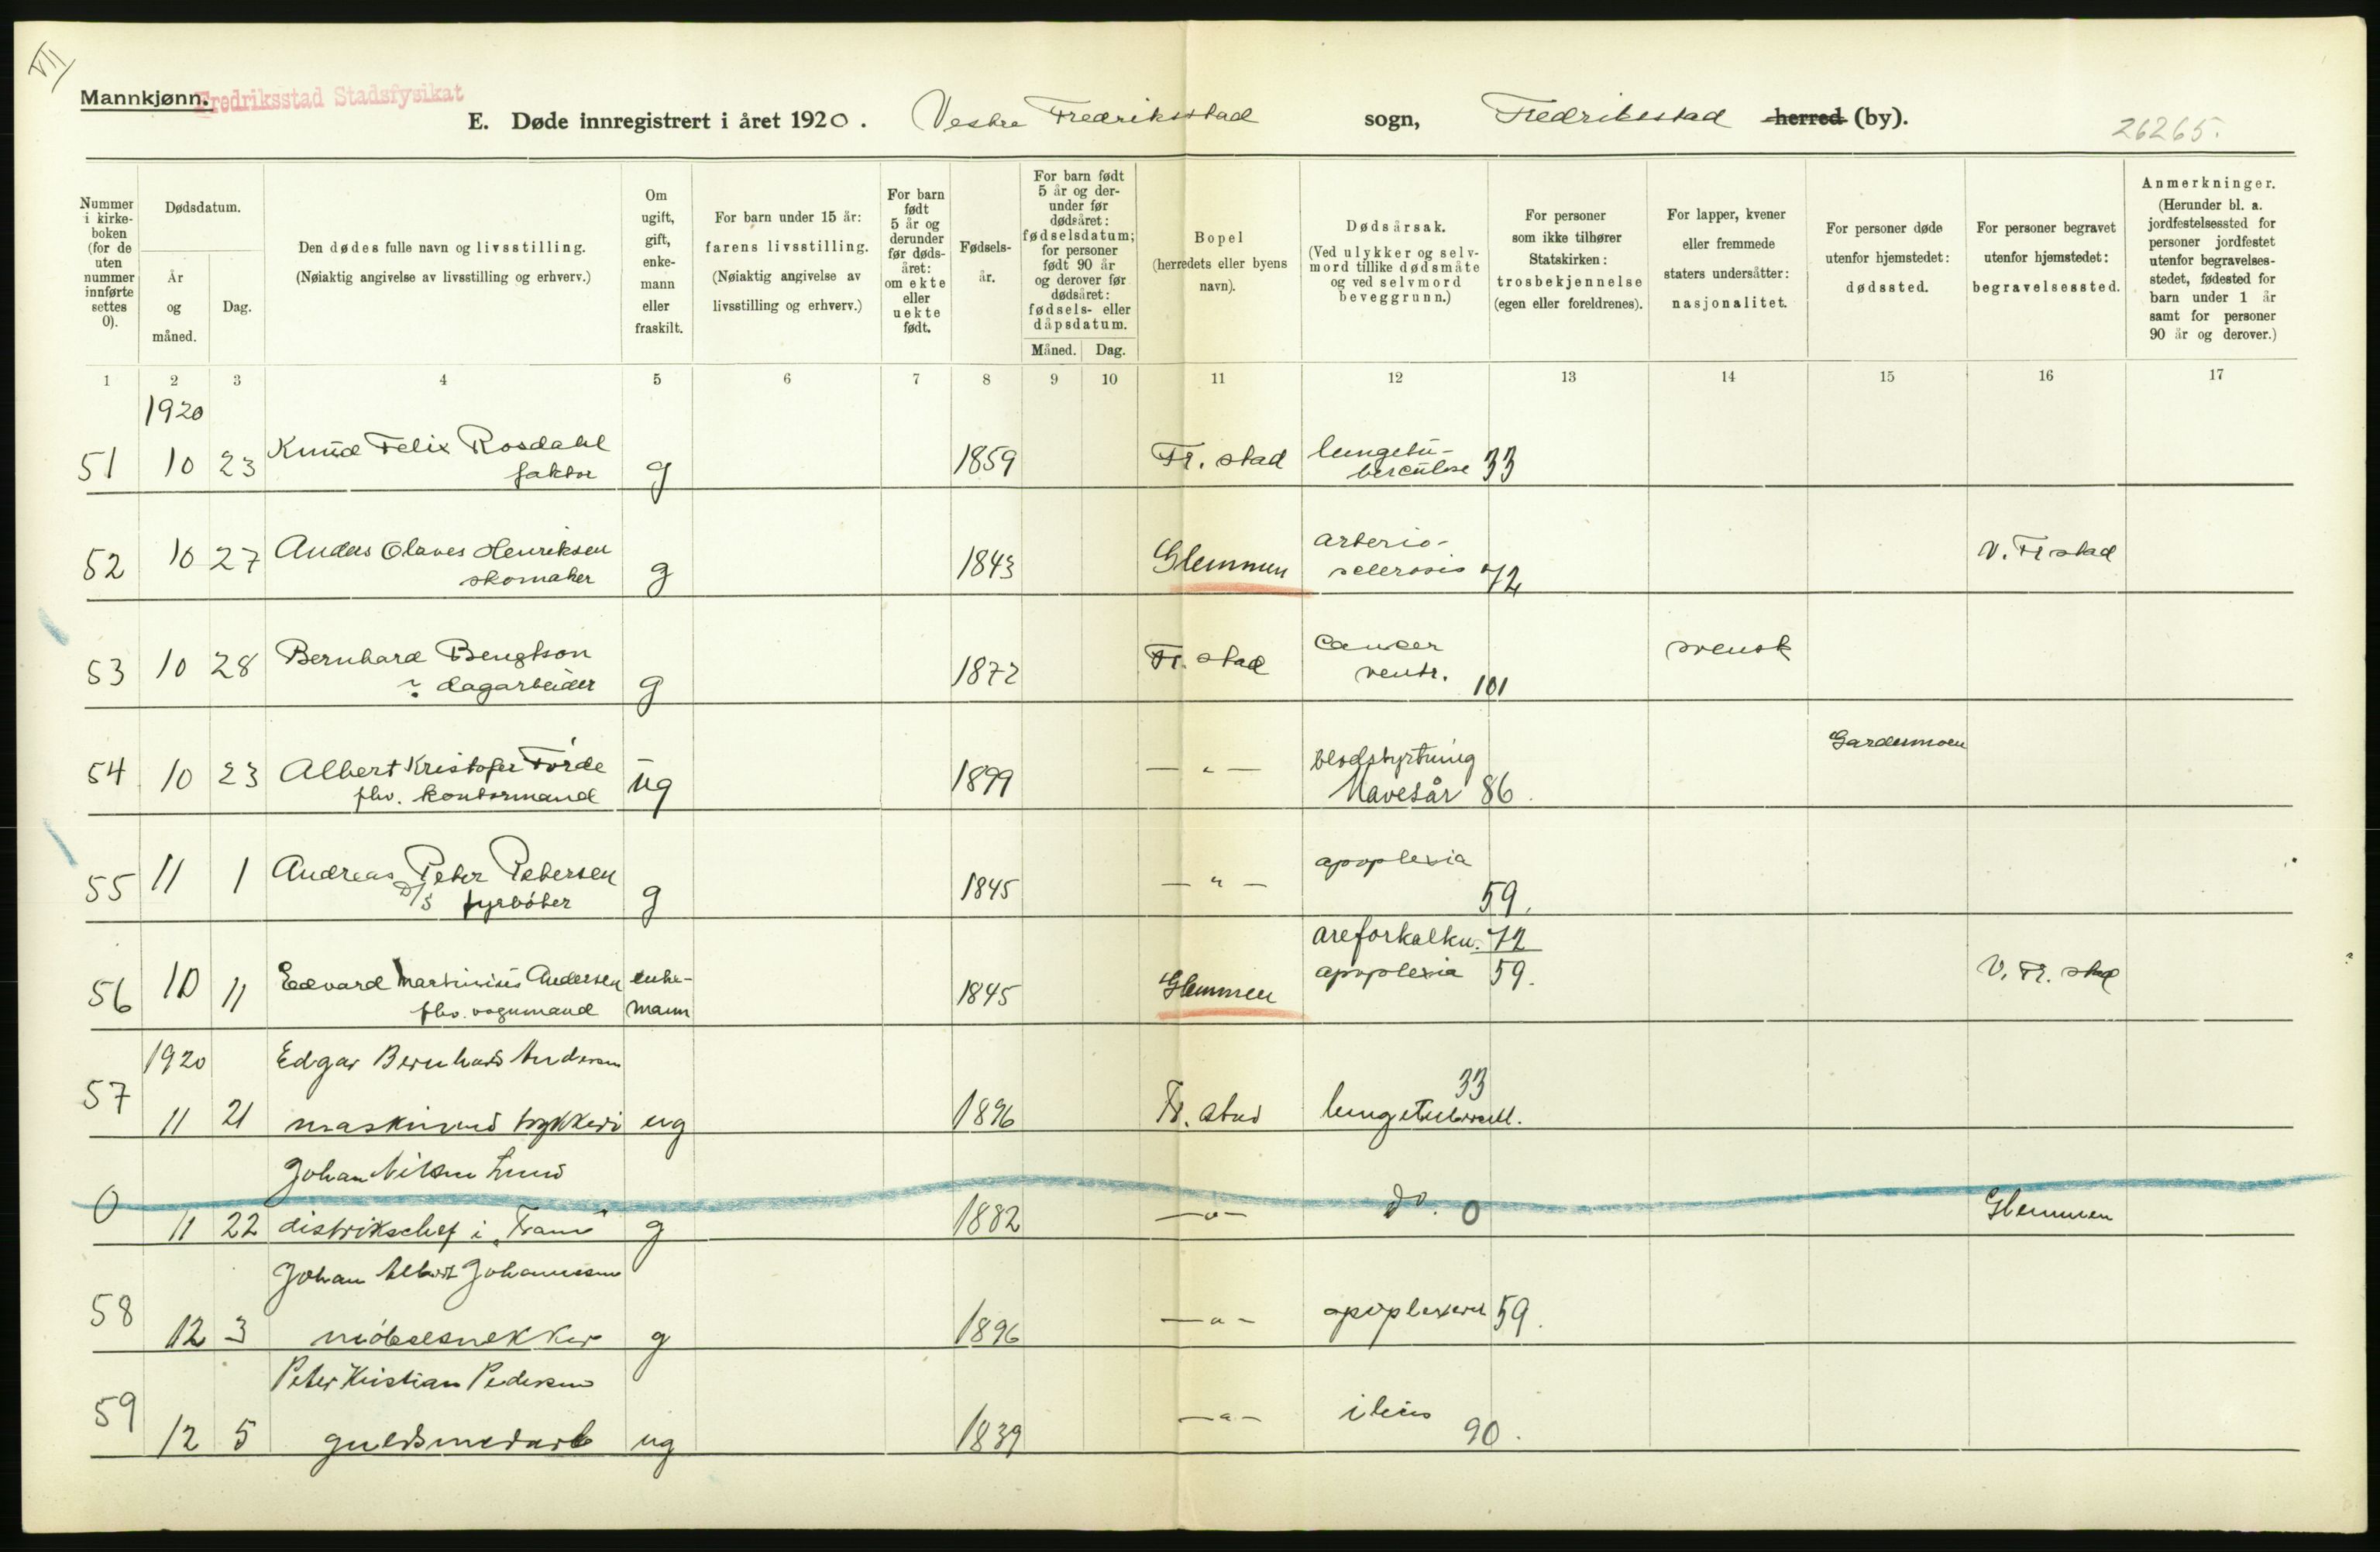 VII
Mannkjønn. Fredriksstad Stadsfysikat
E. Døde innregistrert i året 1920. Vestre Fredriksstad sogn, Fredriksstad herred (by). 26265.
Nummer i kirkeboken (for de uten nummer innførte settes 0).
Dødsdatum.
År og måned.
Dag.
Den dødes fulle navn og livsstilling.
(Nøiaktig angivelse av livsstilling og erhverv.)
Om ugift, gift, enkemann eller fraskilt.
For barn under 15 år:
farens livsstilling.
(Nøiaktig angivelse av livsstilling og erhverv.)
For barn født 5 år og derunder før dødsåret: om ekte eller uekte født.
Fødselsår.
For barn født 5 år og derunder før dødsåret: fødselsdatum; for personer født 90 år og derover før dødsåret: fødsels- eller dåpsdatum.
Måned. Dag.
Bopel
(herredets eller byens navn).
Dødsårsak.
(Ved ulykker og selvmord tillike dødsmåte og ved selvmord beveggrunn.)
For personer som ikke tilhører Statskirken: trosbekjennelse (egen eller foreldrenes).
For lapper, kvener eller fremmede staters undersåtter: nasjonalitet.
For personer døde utenfor hjemstedet: dødssted.
For personer begravet utenfor hjemstedet: begravelsessted.
Anmerkninger.
(Herunder bl. a. jordfestelsessted for personer jordfestet utenfor begravelsesstedet, fødested for barn under 1 år samt for personer 90 år og derover.)
1 2 3 4 5 6 7 8 9 10 11 12 13 14 15 16 17
1920
51 10 23 Knud Felix Rosdahl g 1859 Fr. stad lungetu- 33
faktor berculose
52 10 27 Anders Olaves Henriksen g 1843 Glemmen arterio- 72 V. Fr stad
skomaker sclerosis
53 10 28 Bernhard Bengtson g 1872 Fr. stad Cancer 101 svensk
? dagarbeider ventr.
54 10 23 Albert Kristofer Förde ug 1899 — " — blodstyrtning Gardermoen
fhv. kontormand Mavesår 86.
55 11 1 Andreas Peter Petersen g 1845 — " — apoplexia
D/S fyrbøter 59.
areforkalkn. 72
56 10 11 Edvard Martinius Andersen enke- 1845 Glemmen apoplexia 59. V. Fr. stad
fhv. vognmand mann
1920 Edgar Bernhard Andersen
57 11 21 trykkeri ug 1896 Fr. stad 33
0 Johan Lund
11 22 distriktschef i "Fram" g 1882 — " — do. 0 Glemmen
Johan Albert Johannessen
58 12 3 møbelsnekker g 1896 — " — 59.
Peter Kristian Pedersen
59 12 5 guldsmedarb ug 1839 — " — ileus 90.